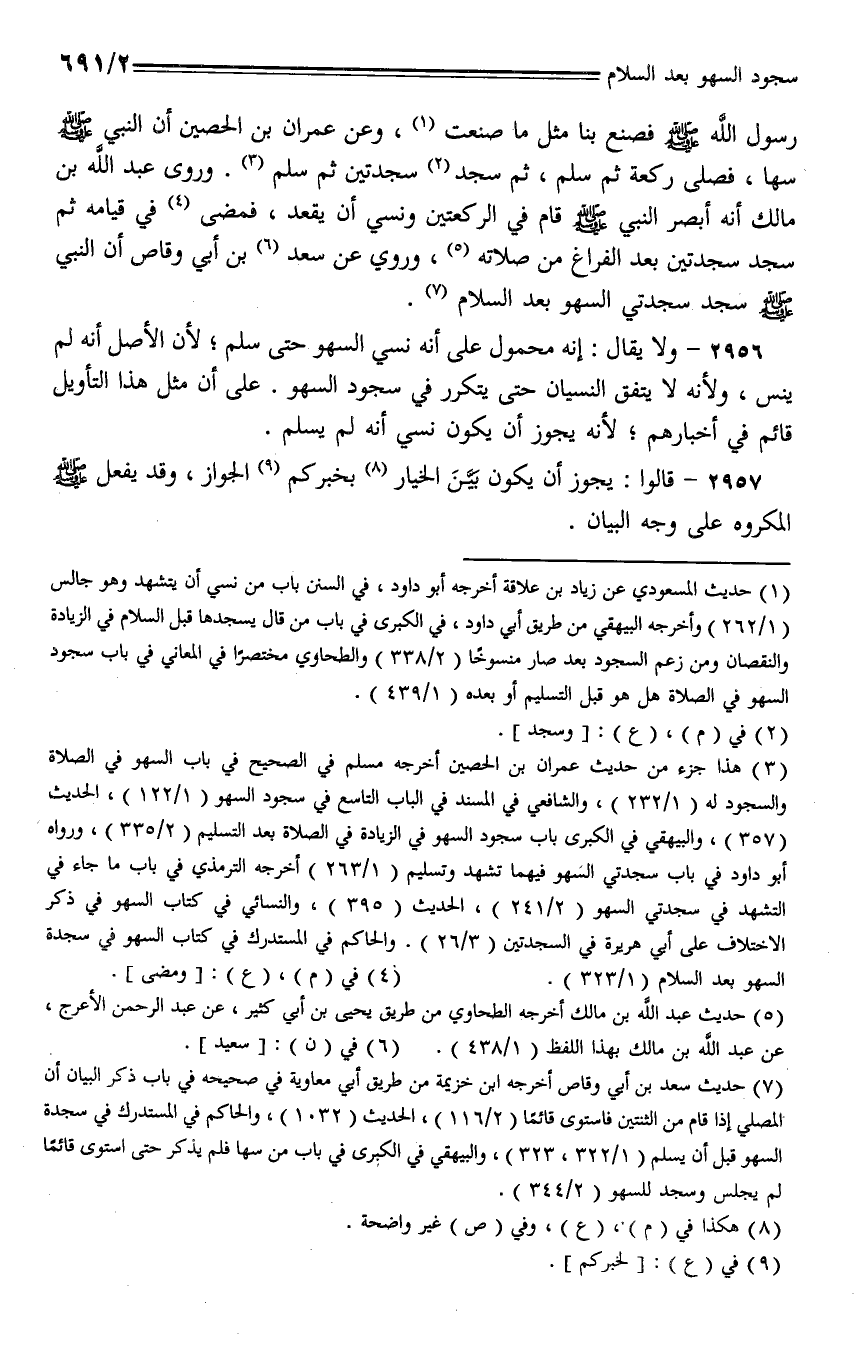 سجود السهو بعد السلام ٦٩١/٢
رسول اللَّه ﷺ فصنع بنا مثل ما صنعت (١) ، وعن عمران بن الحصين أن النبي ﷺ
سها ، فصلى ركعة ثم سلم ، ثم سجد (٢) سجدتين ثم سلم (٣) . وروى عبد اللَّه بن
مالك أنه أبصر النبي ﷺ قام في الركعتين ونسي أن يقعد ، فمضى (٤) في قيامه ثم
سجد سجدتين بعد الفراغ من صلاته (٥) ، وروي عن سعد (٦) بن أبي وقاص أن النبي
ﷺ سجد سجدتي السهو بعد السلام (٧) .
٢٩٥٦ – ولا يقال : إنه محمول على أنه نسي السهو حتى سلم ؛ لأن الأصل أنه لم
ينس ، ولأنه لا يتفق النسيان حتى يتكرر في سجود السهو . على أن مثل هذا التأويل
قائم في أخبارهم ؛ لأنه يجوز أن يكون نسي أنه لم يسلم .
٢٩٥٧ – قالوا : يجوز أن يكون بَيَّنَ الخيار (٨) بخبركم (٩) الجواز ، وقد يفعل ﷺ
المكروه على وجه البيان .
(١) حديث المسعودي عن زياد بن علاقة أخرجه أبو داود ، في السنن باب من نسي أن يتشهد وهو جالس
( ٢٦٢/١ ) وأخرجه البيهقي من طريق أبي داود ، في الكبرى في باب من قال يسجدها قبل السلام في الزيادة
والنقصان ومن زعم السجود بعد صار منسوخًا ( ٣٣٨/٢ ) والطحاوي مختصرًا في المعاني في باب سجود
السهو في الصلاة هل هو قبل التسليم أو بعده ( ٤٣٩/١ ) .
(٢) في ( م ) ، ( ع ) : [ وسجد ] .
(٣) هذا جزء من حديث عمران بن الحصين أخرجه مسلم في الصحيح في باب السهو في الصلاة
والسجود له ( ٢٣٢/١ ) ، والشافعي في المسند في الباب التاسع في سجود السهو ( ١٢٢/١ ) ، الحديث
( ٣٥٧ ) ، والبيهقي في الكبرى باب سجود السهو في الزيادة في الصلاة بعد التسليم ( ٣٣٥/٢ ) ، ورواه
أبو داود في باب سجدتي السهو فيهما تشهد وتسليم ( ٢٦٣/١ ) أخرجه الترمذي في باب ما جاء في
التشهد في سجدتي السهو ( ٢٤١/٢ ) ، الحديث ( ٣٩٥ ) ، والنسائي في كتاب السهو في ذكر
الاختلاف على أبي هريرة في السجدتين ( ٢٦/٣ ) . والحاكم في المستدرك في كتاب السهو في سجدة
السهو بعد السلام ( ٣٢٣/١ ) . (٤) في ( م ) ، ( ع ) : [ ومضى ] .
(٥) حديث عبد اللَّه بن مالك أخرجه الطحاوي من طريق يحيى بن أبي كثير ، عن عبد الرحمن الأعرج ،
عن عبد اللَّه بن مالك بهذا اللفظ ( ٤٣٨/١ ) . (٦) في ( ن ) : [ سعيد ] .
(٧) حديث سعد بن أبي وقاص أخرجه ابن خزيمة من طريق أبي معاوية في صحيحه في باب ذكر البيان أن
المصلي إذا قام من الثنتين فاستوى قائمًا ( ١١٦/٢ ) ، الحديث ( ١٠٣٢ ) ، والحاكم في المستدرك في سجدة
السهو قبل أن يسلم ( ٣٢٢/١ ، ٣٢٣ ) ، والبيهقي في الكبرى في باب من سها فلم يذكر حتى استوى قائمًا
لم يجلس وسجد للسهو ( ٣٤٤/٢ ) .
(٨) هكذا في ( م ) ، ( ع ) ، وفي ( ص ) غير واضحة .
(٩) في ( ع ) : [ لخبركم ] .